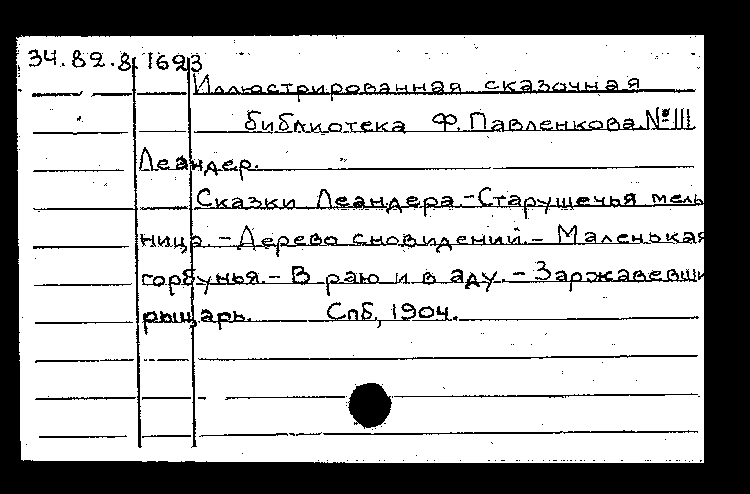 34.82.8. 1623
Иллюстрированная сказочная
библиотека Ф. Павленкова. № 111
Леандер.
Сказки Леандера. - Старушечья мель
ница. - Дерево сновидений. - Маленькая
горбунья. - В раю и в аду. - Заржавевши
рыцарь. Спб, 1904.